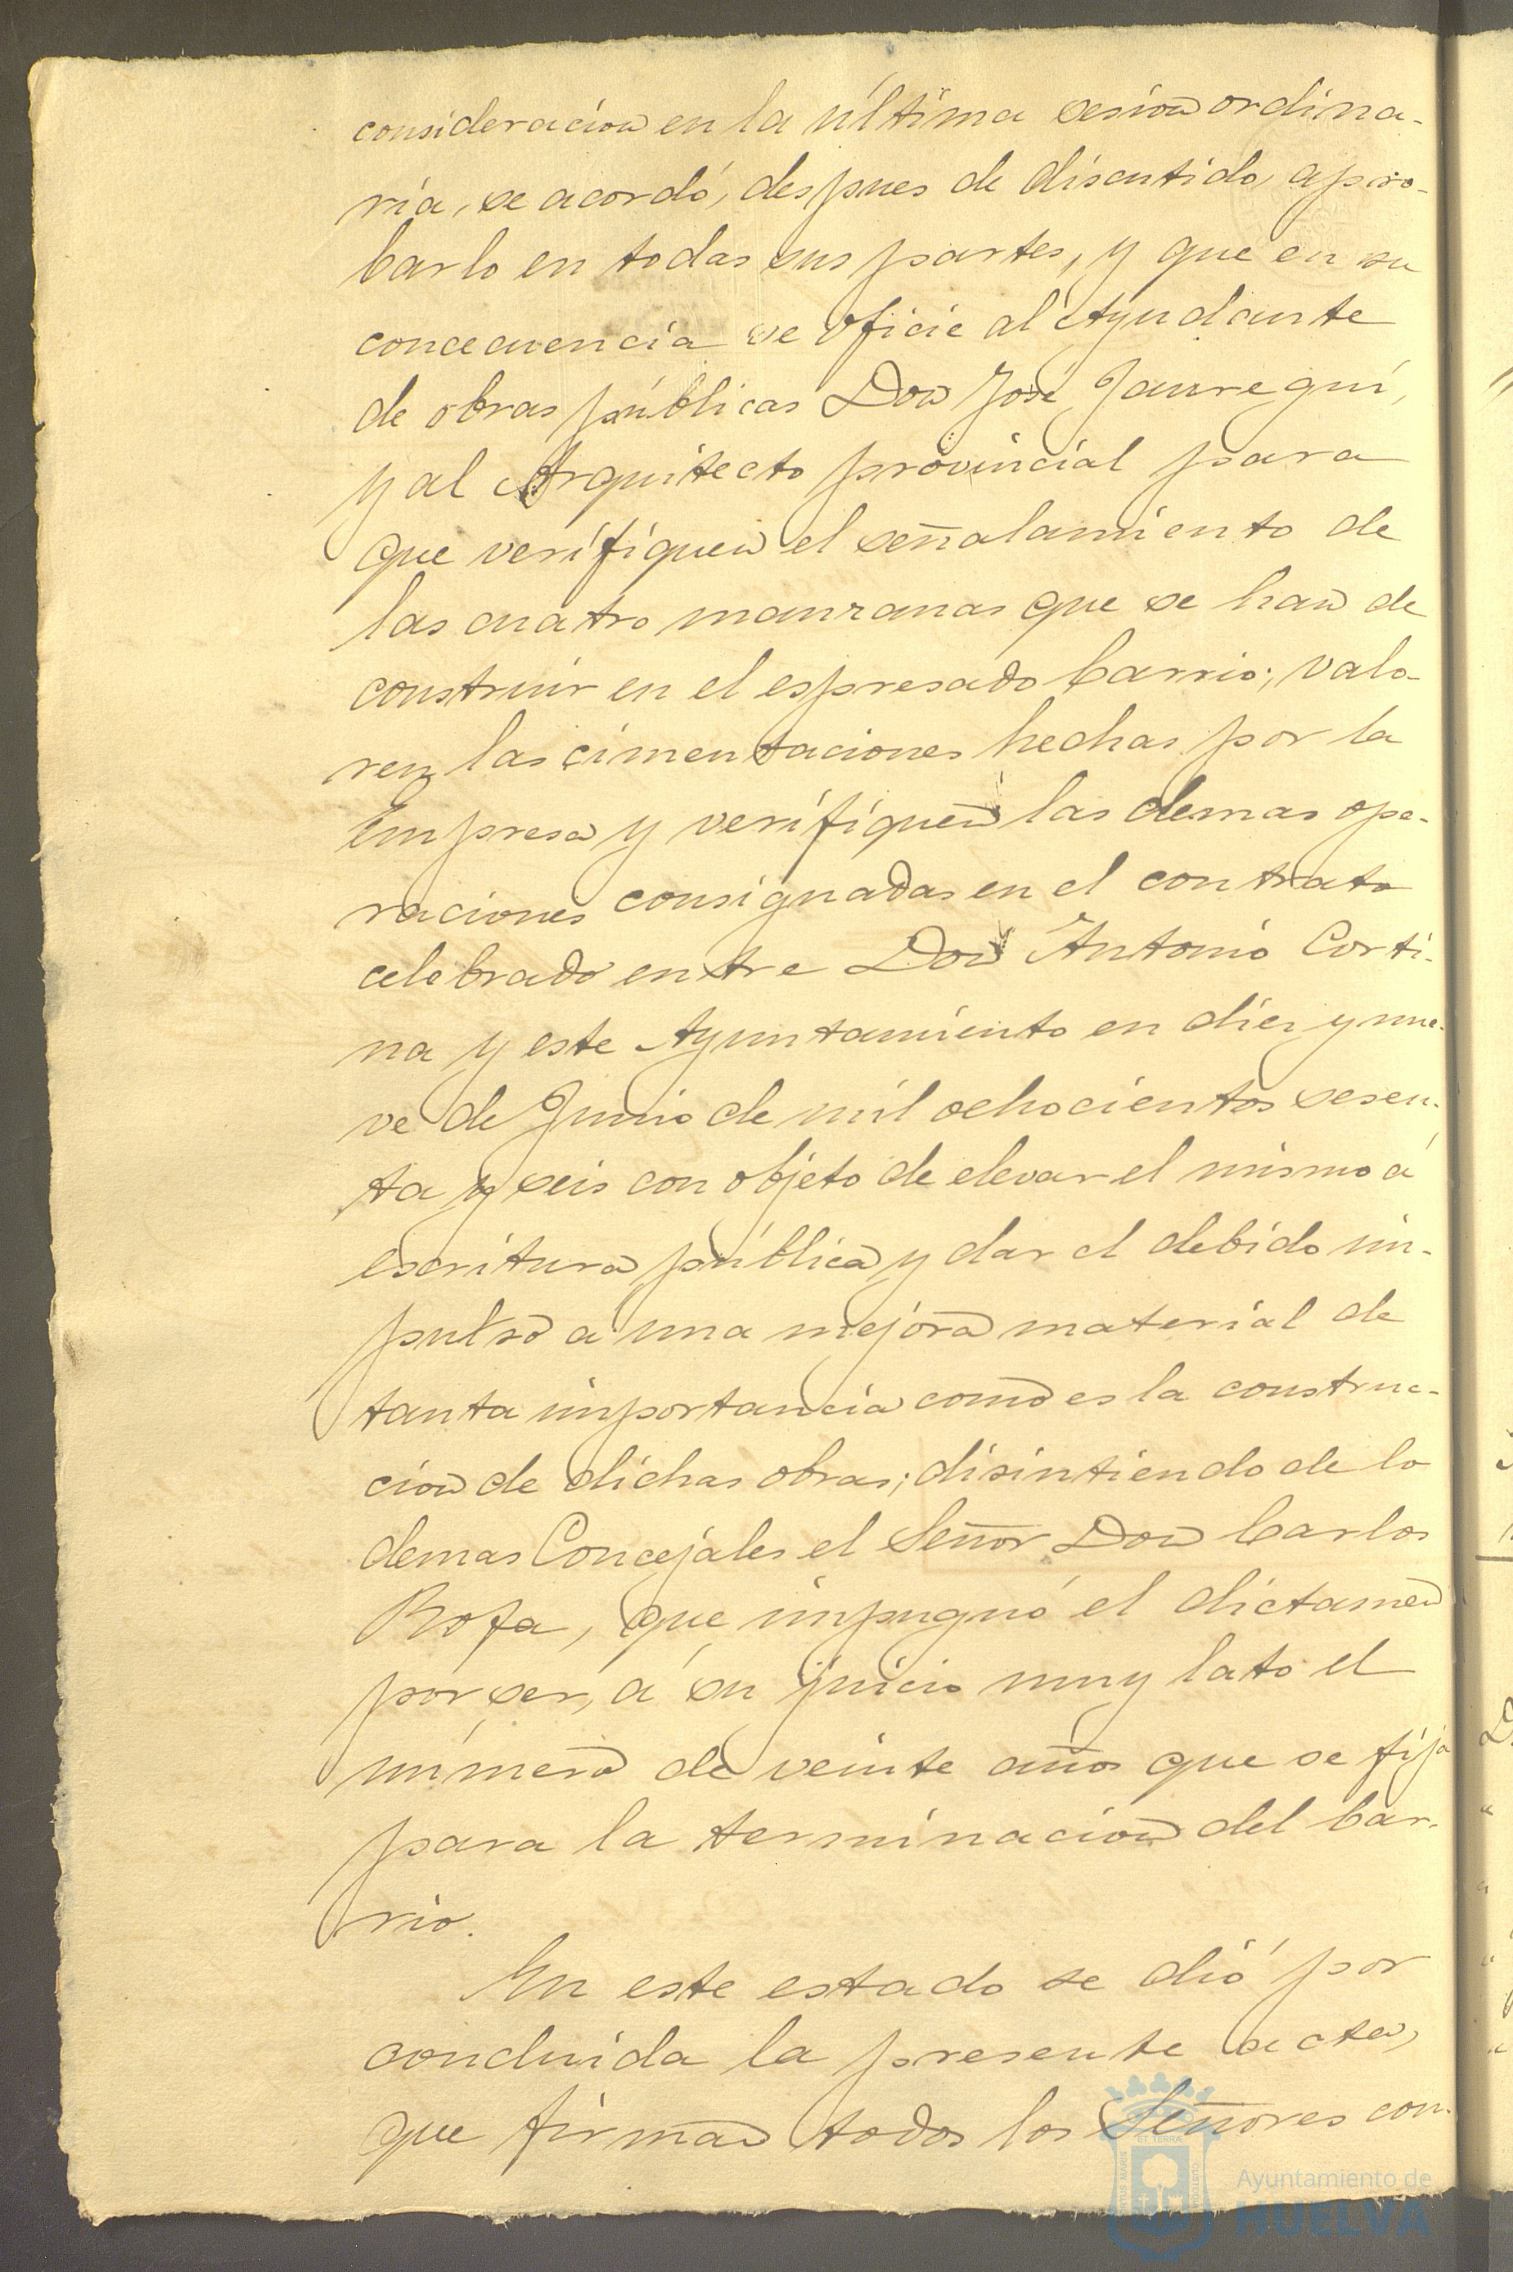 consideracion en la última sesion ordina-
ria, se acordó, despues de discutido, apro-
barlo en todas sus partes, y que en su
concecuencia se oficie al Ayudante
de obras públicas Don José Jaurregui,
y al Arquitecto provincial para
que verifiquen el señalamiento de
las cuatro manzanas que se han de
construir en el espresado barrio; valo-
ren las cimentaciones hechas por la
Empresa y verifiquen las demas ope-
raciones consignadas en el contrato
celebrado entre Don Antonio Corti-
na y este Ayuntamiento en diez y nue-
ve de Junio de mil ochocientos sesen-
ta y seis con objeto de elevar el mismo á
escritura pública y dar el debido im-
pulso a una mejora material de
tanta importancia como es la construc-
cion de dichas obras; disintiendo de lo
demas Concejales el Señor Don Carlos
Rofa, que impugnó el dictamen
por ser, á su juicio muy lato el
número de veinte años que se fija
para la terminacion del bar-
rio.
En este estado se dió por
concluida la presente acta,
que firman todos los Señores con-
Ayuntamiento de
HUELVA